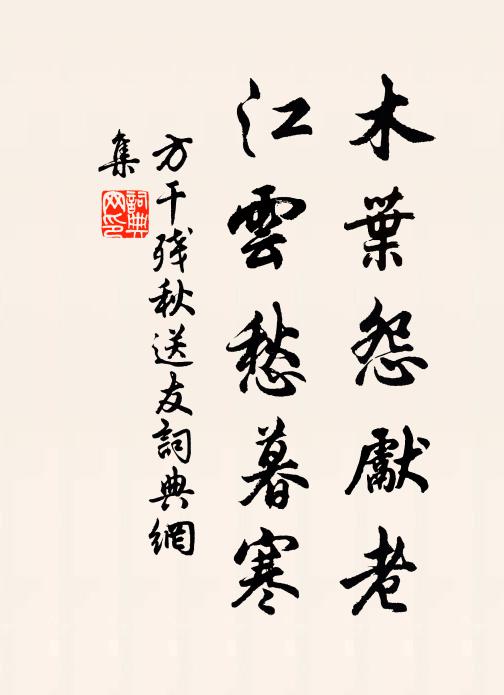 木葉怨獻老
江雲愁暮寒
方干残秋送友詞典網
集
詞典
网印